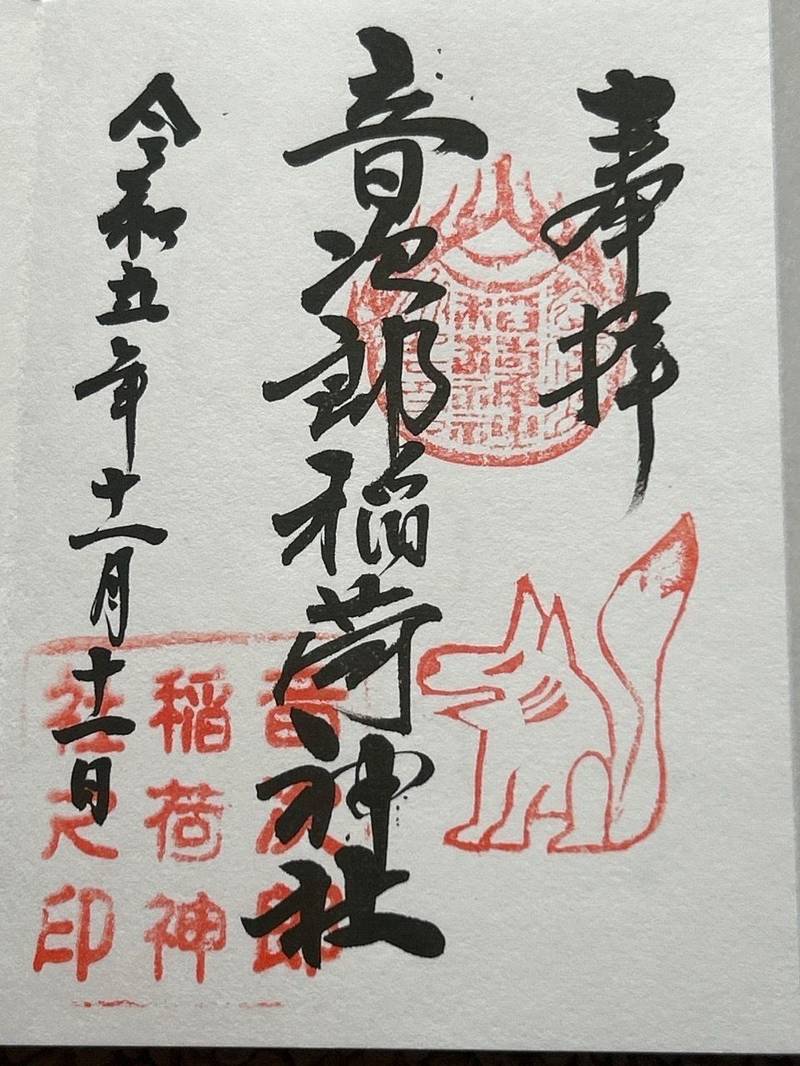 奉拝
音次郎稲荷神社
令和五年十一月十一日
音次郎
稲荷神
社之印